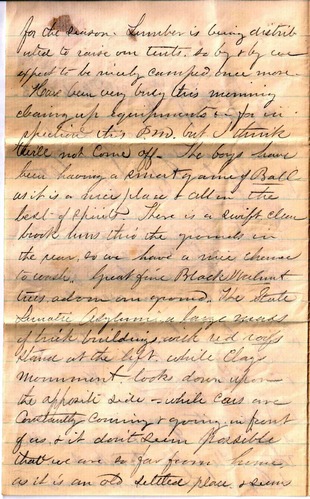 for the season. Lumber is being distrib
uted to raise our tents, so by & by we
expect to be nicely camped once more.
Have been very busy this morning
cleaning up equipments &c for in
spection this P.M. but I think
will not come off. The boys have
been having a smart game of Ball
as it is a nice place & all in the
best of spirits. There is a swift, clear
brook runs thro the grounds in
the rear, so we have a nice chance
to wash. Great fine Black Walnut
trees adorn our ground. The State
Lunatic Asylum a large mass
of brick buildings with red roofs
stand at the left. while Clay
monument. looks down upon
the opposite side - while cars are
constantly coming & going in front
of us. & it don't seem possible
that we are so far from home,
as it is an old settled place. & seem